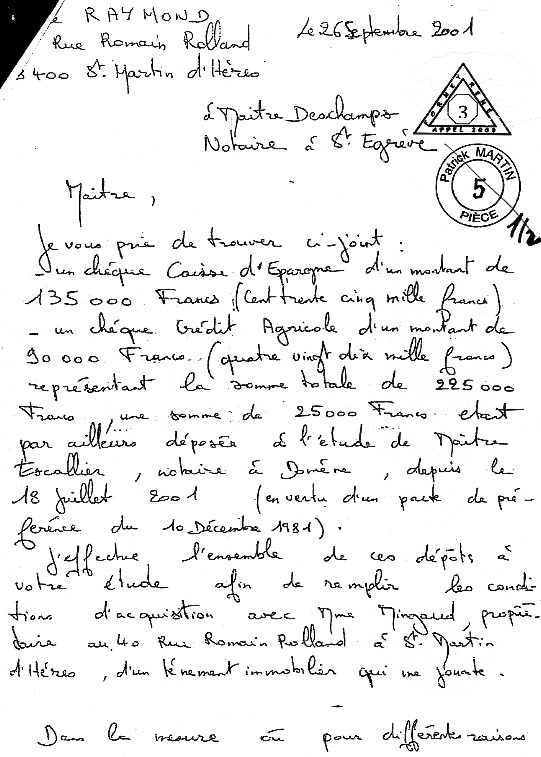 RAYMOND
Rue Romain Rolland
400 St Martin d'Hères
Le 26 Septembre 2001
à Maitre Deschamps
Notaire à St Egrève
CORNET RENE
3
APPEL 2009
Patrick MARTIN
5
PIÈCE
1/2
Maitre,
Je vous prie de trouver ci-joint :
- un chéque Caisse d'Epargne d'un montant de
135 000 Francs (Cent trente cinq mille francs)
- un chéque Crédit Agricole d'un montant de
90 000 Francs (quatre vingt dix mille francs)
représentant la somme totale de 225 000
Francs, une somme de 25 000 Francs etant
par ailleurs déposée à l'étude de Maitre
Escallier, notaire à Domène, depuis le
18 Juillet 2001 (en vertu d'un pacte de pré-
férence du 10 Décembre 1981).
J'effectue l'ensemble de ces dépôts à
votre étude afin de remplir les condi-
tions d'acquisition avec Mme Mingaud, proprié-
taire au 40 Rue Romain Rolland à St Martin
d'Hères, d'un ténement immobilier qui me jouxte.
Dans la mesure où pour différentes raisons